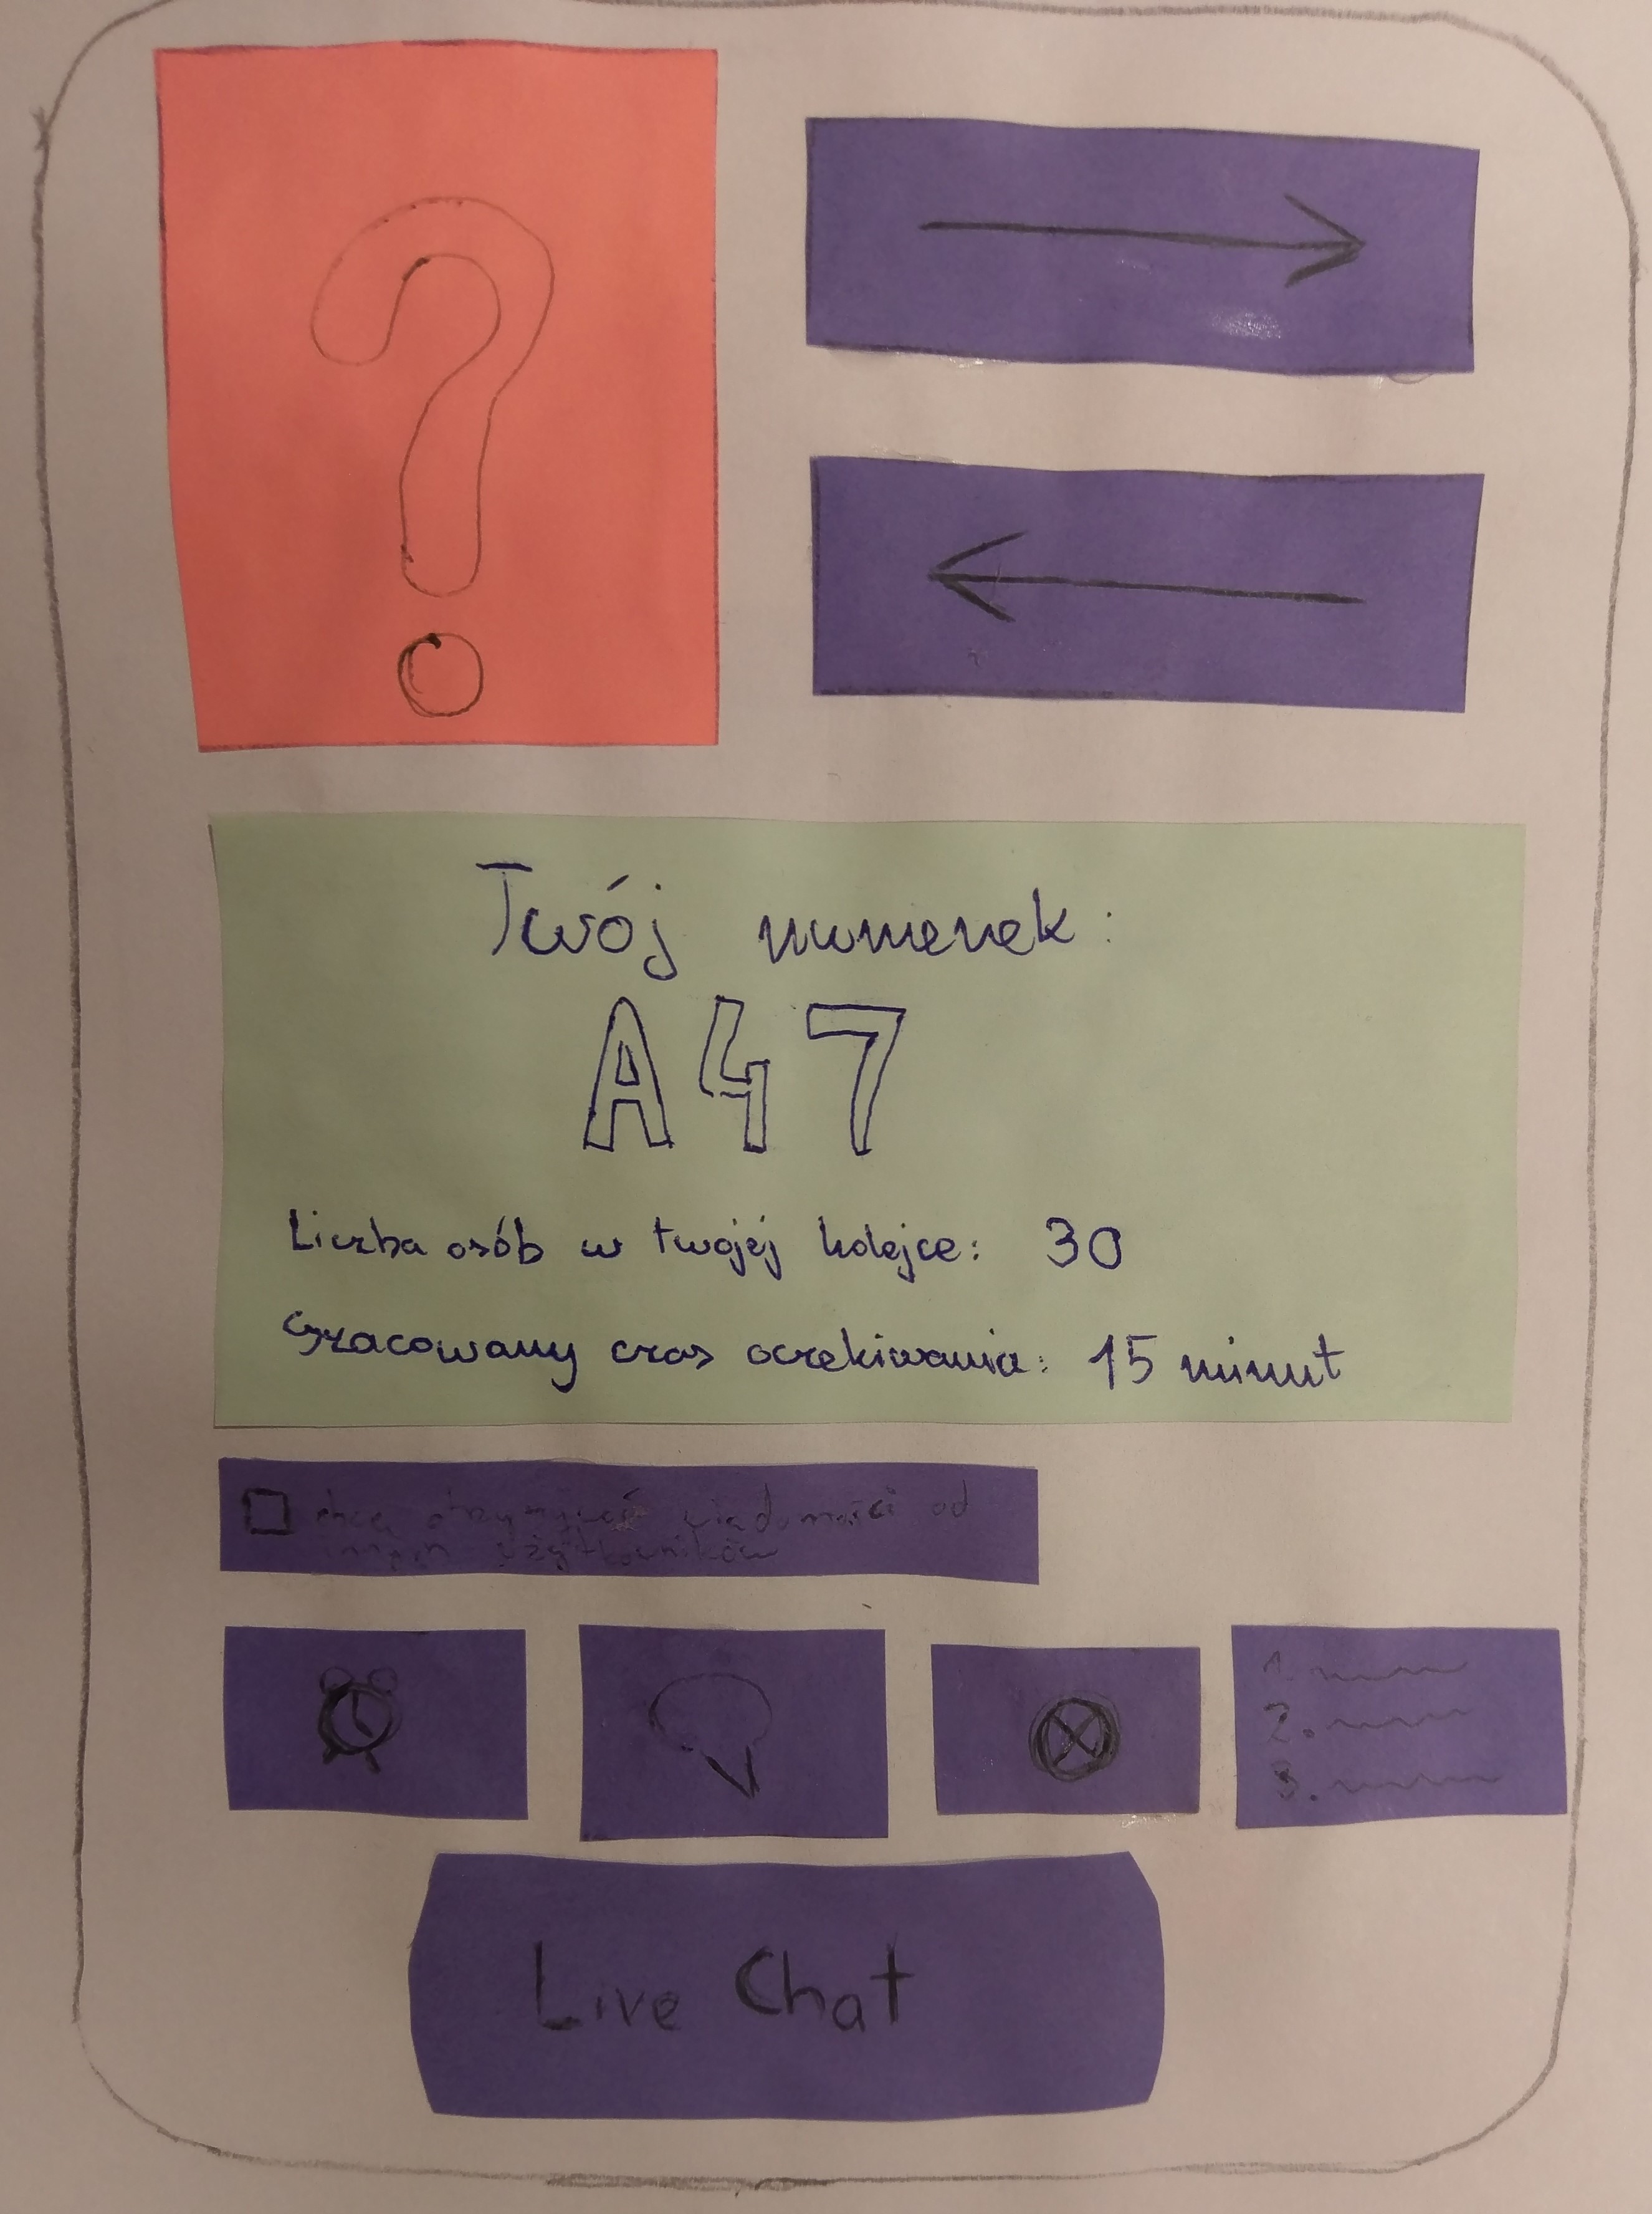 ?
Twój numerek:
A47
Liczba osób w twojej kolejce: 30
Szacowany czas oczekiwania: 15 minut
chcę otrzymywać wiadomości od
innych użytkowników
1.
2.
3.
Live Chat